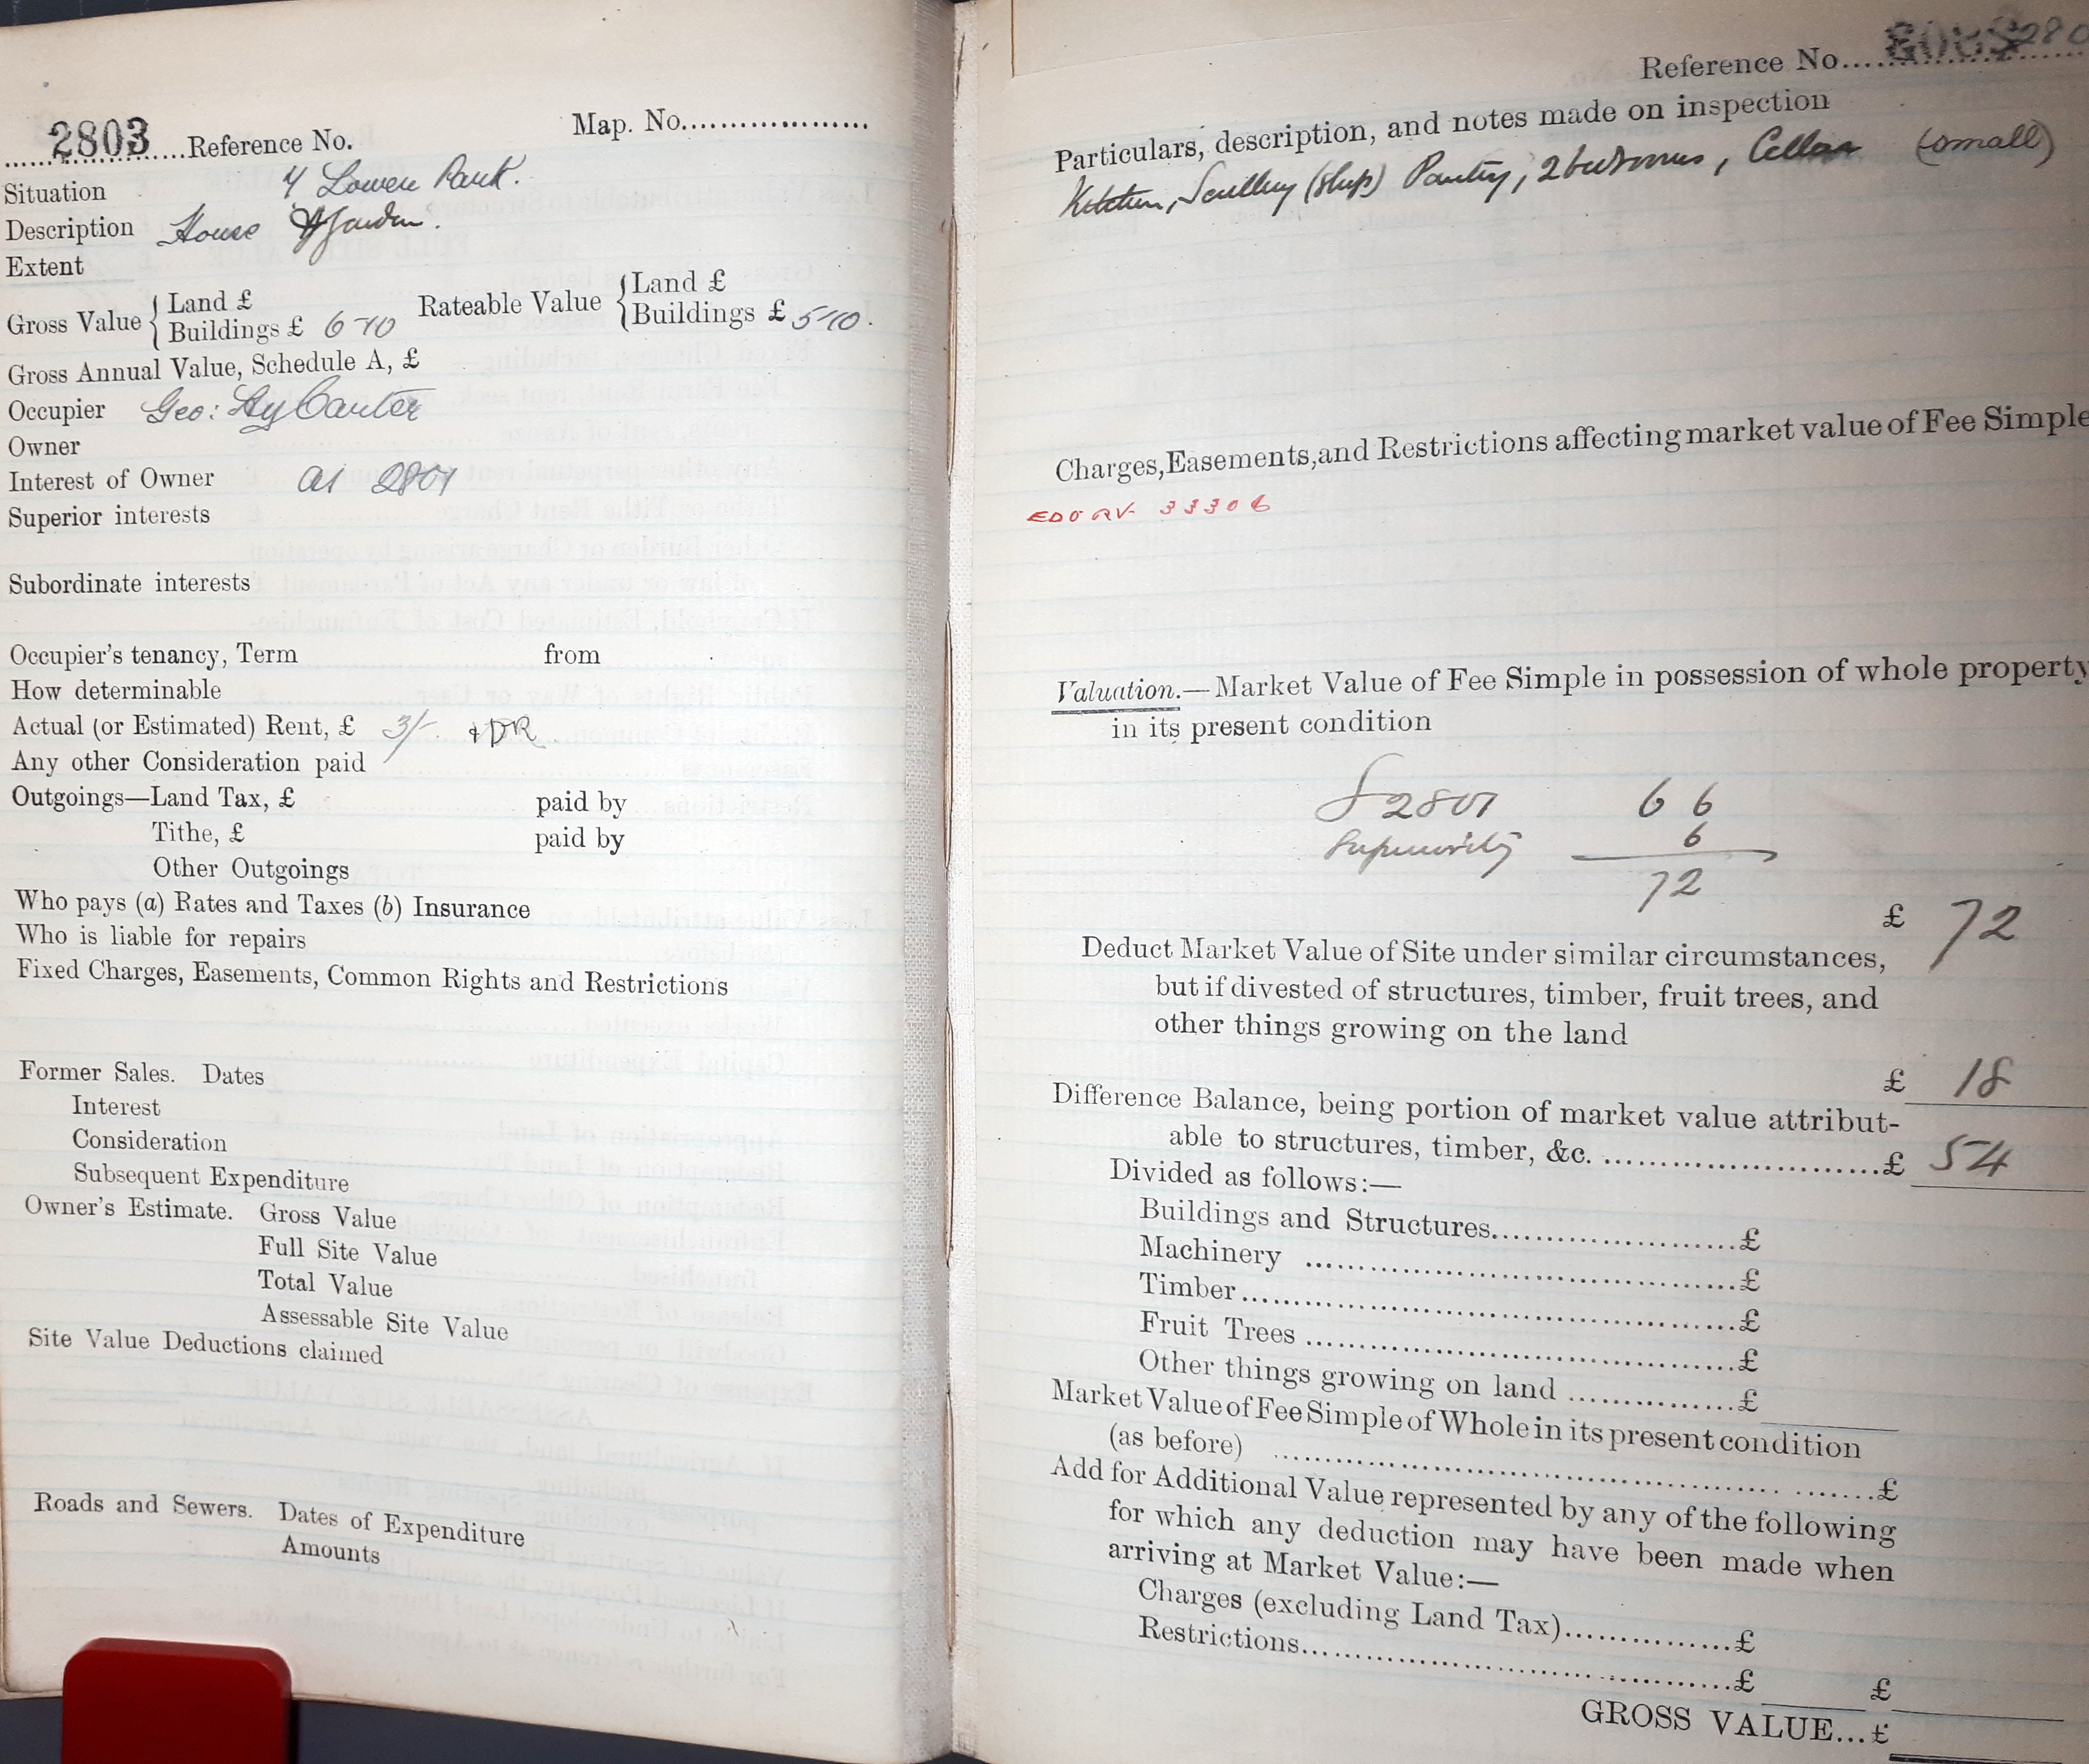 2803 Reference No. Map. No.
Situation 4 Lower Rank.
Description House & Garden.
Extent
Gross Value { Land £
Buildings £ 6-10
Rateable Value { Land £
Buildings £ 5-10.
Gross Annual Value, Schedule A, £
Occupier Geo: Hy Canter
Owner
Interest of Owner as 2801
Superior interests
Subordinate interests
Occupier's tenancy, Term from
How determinable
Actual (or Estimated) Rent, £ 3/- + DR
Any other Consideration paid
Outgoings—Land Tax, £ paid by
Tithe, £ paid by
Other Outgoings
Who pays (a) Rates and Taxes (b) Insurance
Who is liable for repairs
Fixed Charges, Easements, Common Rights and Restrictions
Former Sales. Dates
Interest
Consideration
Subsequent Expenditure
Owner's Estimate. Gross Value
Full Site Value
Total Value
Assessable Site Value
Site Value Deductions claimed
Roads and Sewers. Dates of Expenditure
Amounts
Reference No.
Particulars, description, and notes made on inspection
Kitchen, Scullery (Slip) Pantry, 2 bedrooms, Cellar (small)
Charges, Easements, and Restrictions affecting market value of Fee Simple
33306
Valuation.—Market Value of Fee Simple in possession of whole property
in its present condition
2801 66
Superiority 6
72
£ 72
Deduct Market Value of Site under similar circumstances,
but if divested of structures, timber, fruit trees, and
other things growing on the land
£ 18
Difference Balance, being portion of market value attribut-
able to structures, timber, &c. £ 54
Divided as follows:—
Buildings and Structures £
Machinery £
Timber £
Fruit Trees £
Other things growing on land £
Market Value of Fee Simple of Whole in its present condition
(as before) £
Add for Additional Value represented by any of the following
for which any deduction may have been made when
arriving at Market Value:—
Charges (excluding Land Tax) £
Restrictions £ £
GROSS VALUE... £